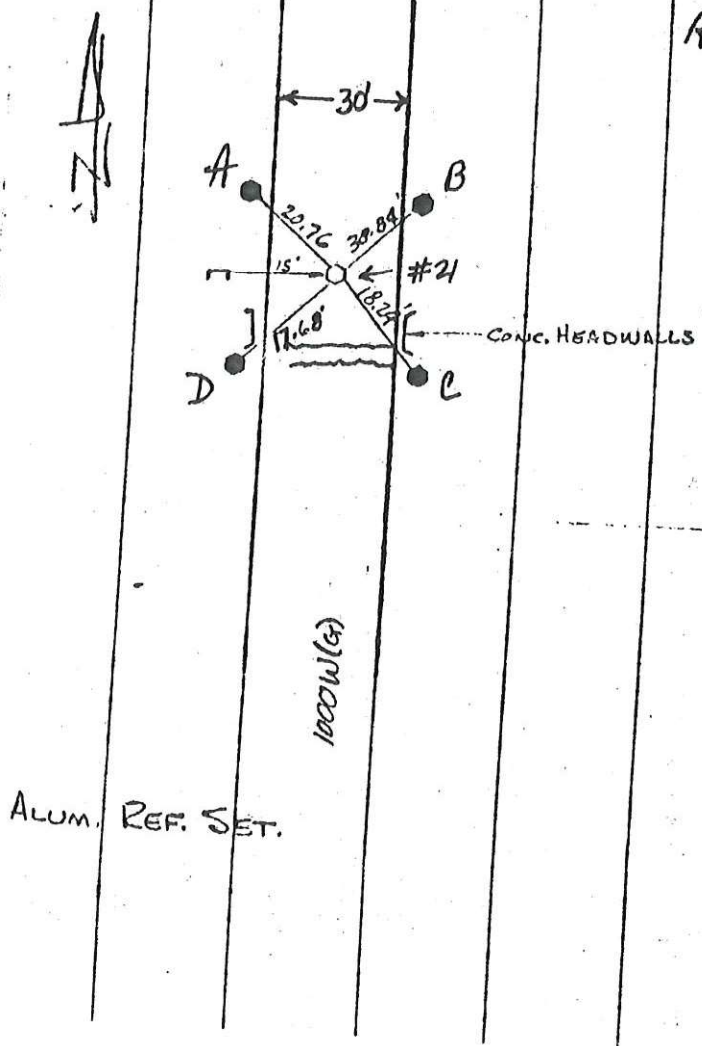 N
30'
A
B
20.76
38.84'
15'
#21
18.24'
17.68'
CONC. HEADWALLS
D
C
1000W(G)
ALUM. REF. SET.